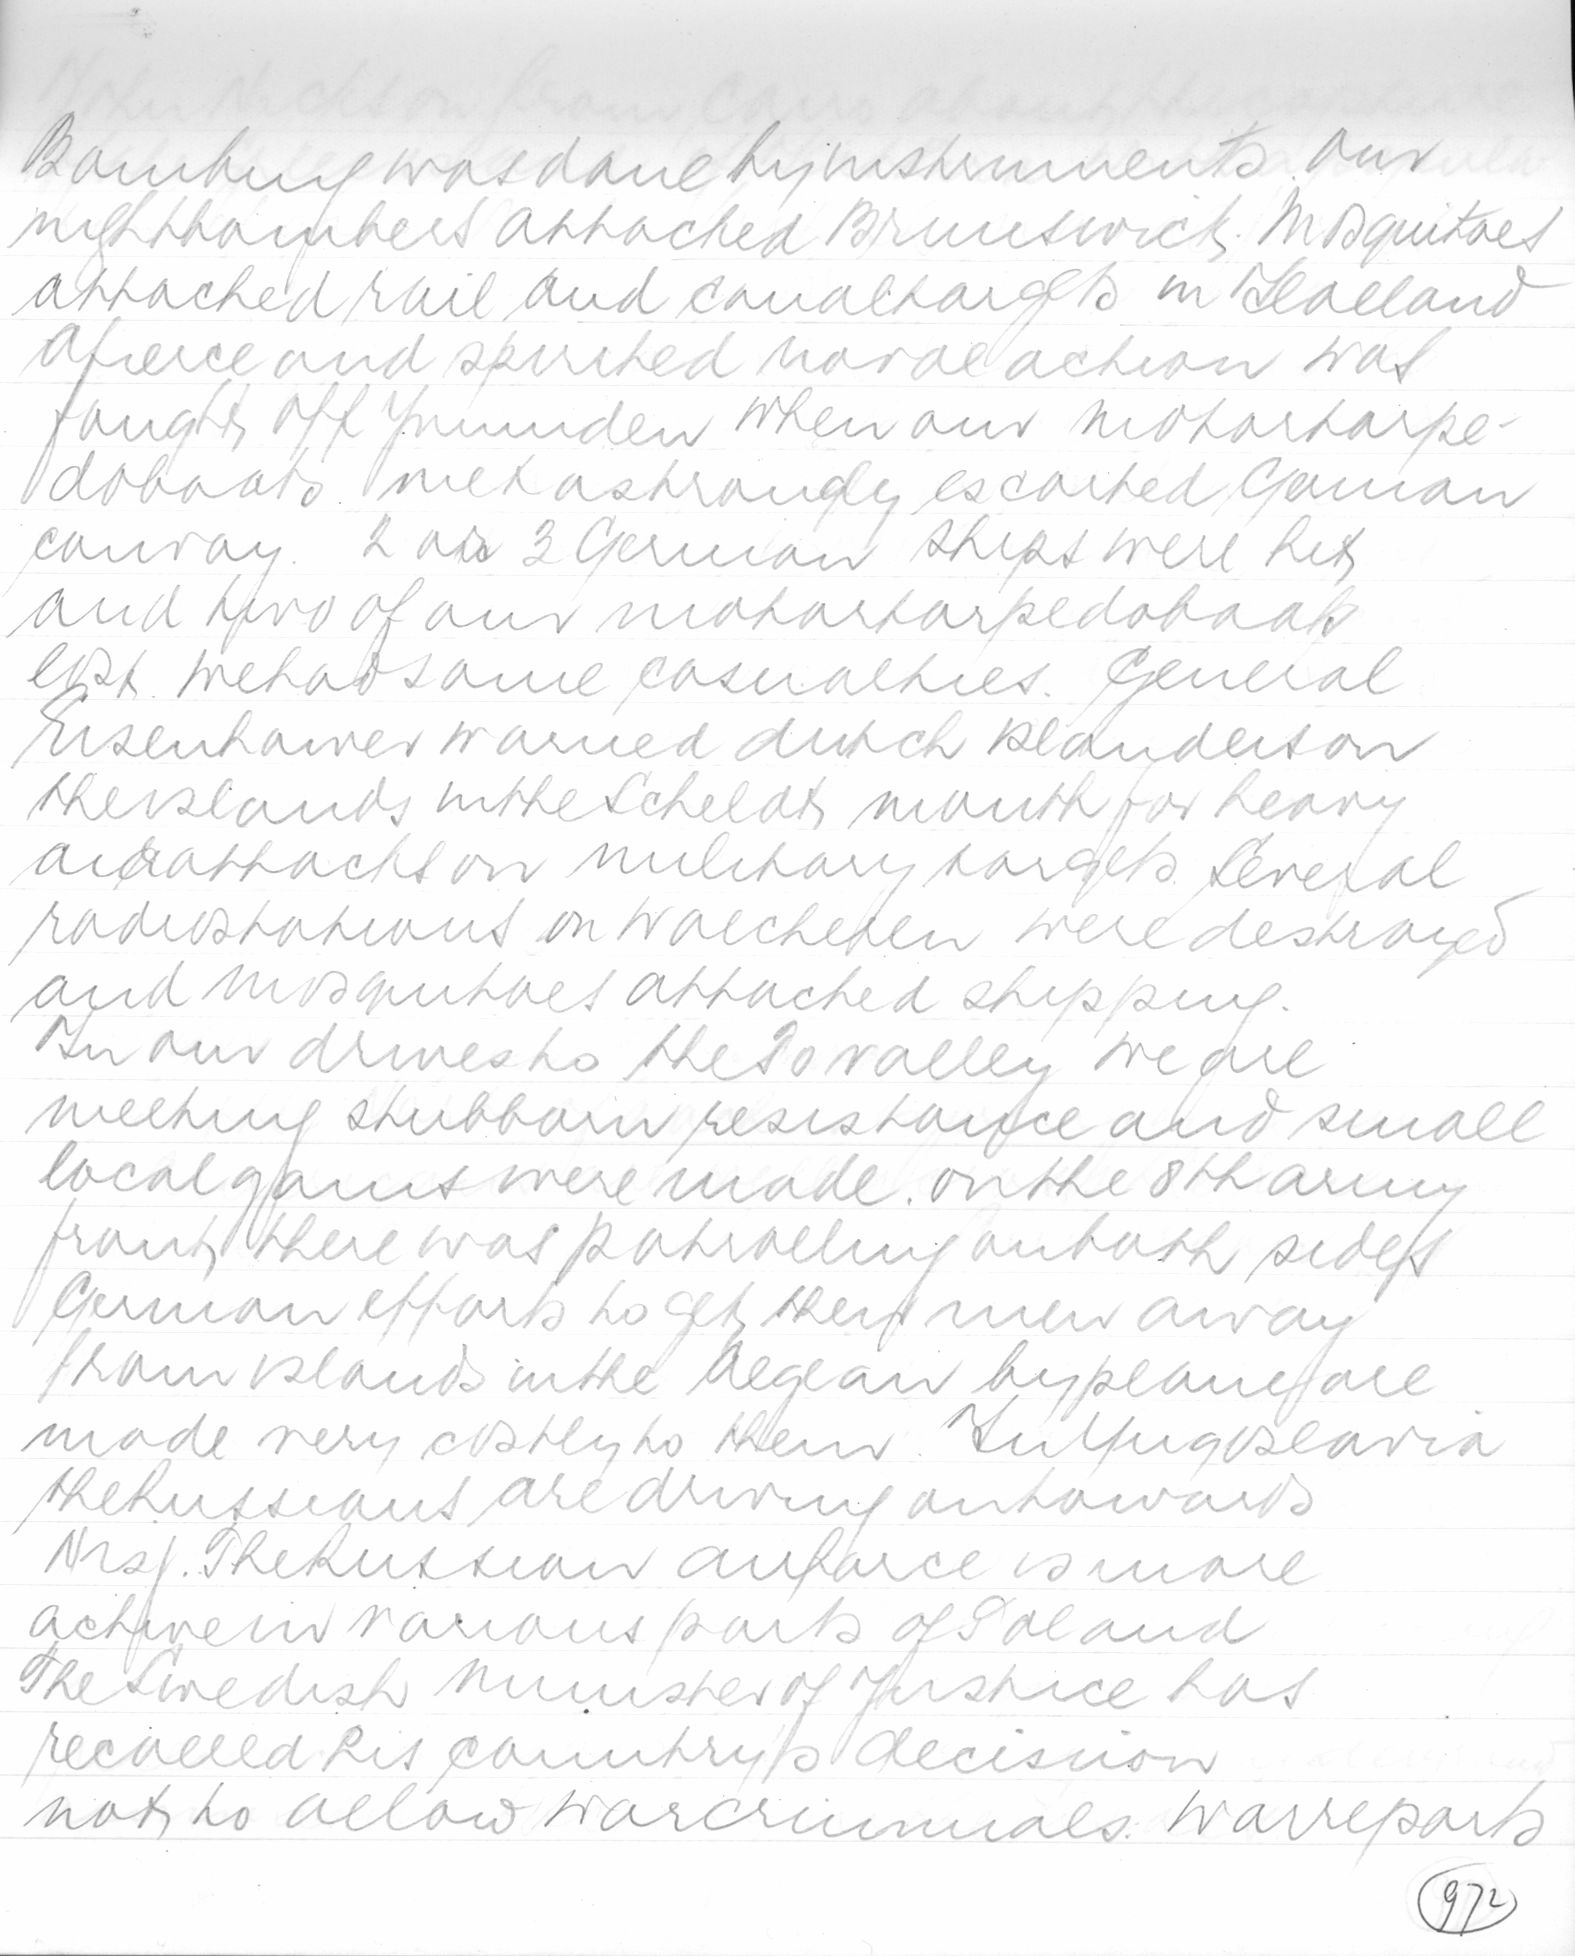 Bombing was done by instruments. Our
nightbombers attacked Brunswick. Mosquitoes
attacked rail and canaltargets in Holland
A fierce and spirited naval action was
fought off Ymuiden when our motortorpe-
doboats met a strongly escorted German
convoy. 2 or 3 German ships were hit
and two of our motortorpedoboats
lost. We had some casualties. General
Eisenhower warned dutch islanders on
the islands in the Scheldt mouth for heavy
airattacks on military targets. Several
radiostations on Walcheren were destroyed
and Mosquitoes attacked shipping.
In our drives to the Po valley we are
meeting stubborn resistance and small
local gains were made. On the 8th army
front there was patrolling on both sides
German efforts to get their men away
from islands in the Aegean by plane are
made very costly to them. In Yugoslavia
the Russians are driving on towards
Nish. The Russian airforce is more
active in various parts of Poland
The Swedish Minister of Justice has
recalled his country's decision
not to allow warcriminals. Warreports
972